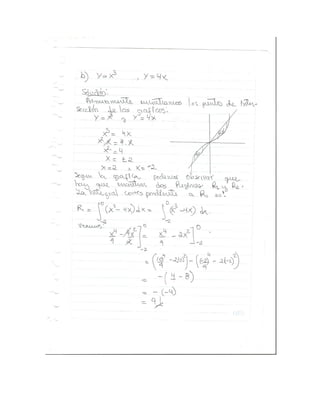 b) y=x³ , y=4x
Solución:
Primeramente encontramos los puntos de Inter-
sección de las graficas.
y=x³ y y=4x
x³= 4x
x²=4
x= ±2
x=2 x=-2
Segun la grafica podemos observar que
hay que encontrar dos Regiones R₁ y R₂.
La integral correspondiente a R₁
R = ∫₋₂⁰ (x³-4x)dx = ∫₋₂⁰ (x³-4x) dx
x⁴/4 - 4x²/2 ]₋₂⁰ = x⁴/4 - 2x² ]₋₂⁰
= ((0)⁴/4 - 2(0)²) - ((-2)⁴/4 - 2(-2)²)
= -(4-8)
= -(-4)
= 4